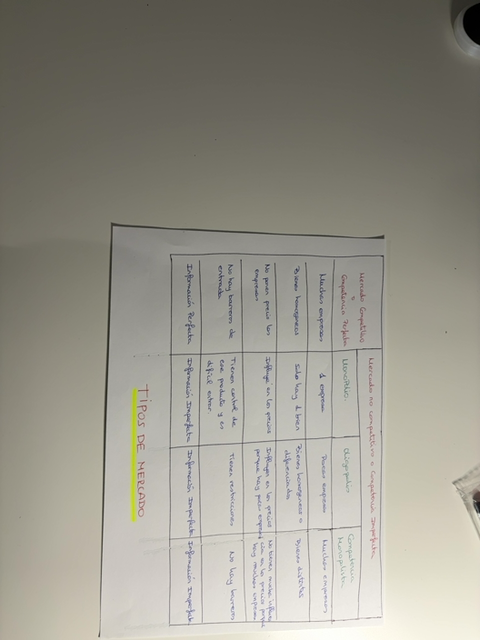 Mercado Competitivo
o
Competencia Perfecta
Mercado no competitivo o Competencia Imperfecta
Monopolio
Oligopolio
Competencia
Monopolística
Muchas empresas
1 empresa
Pocas empresas
Muchas empresas
Bienes homogéneos
Solo hay 1 bien
Bienes homogéneos o
diferenciados
Bienes distintos
No ponen precio las
empresas
Influye en los precios
Influyen en los precios
porque hay pocas empresas
No tienen mucha influen
cia en los precios porque
hay muchas empresas
No hay barreras de
entrada
Tienen control de
ese producto y es
difícil entrar
Tienen restricciones
No hay barreras
Información Perfecta
Información Imperfecta
Información Imperfecta
Información Imperfecta
TIPOS DE MERCADO